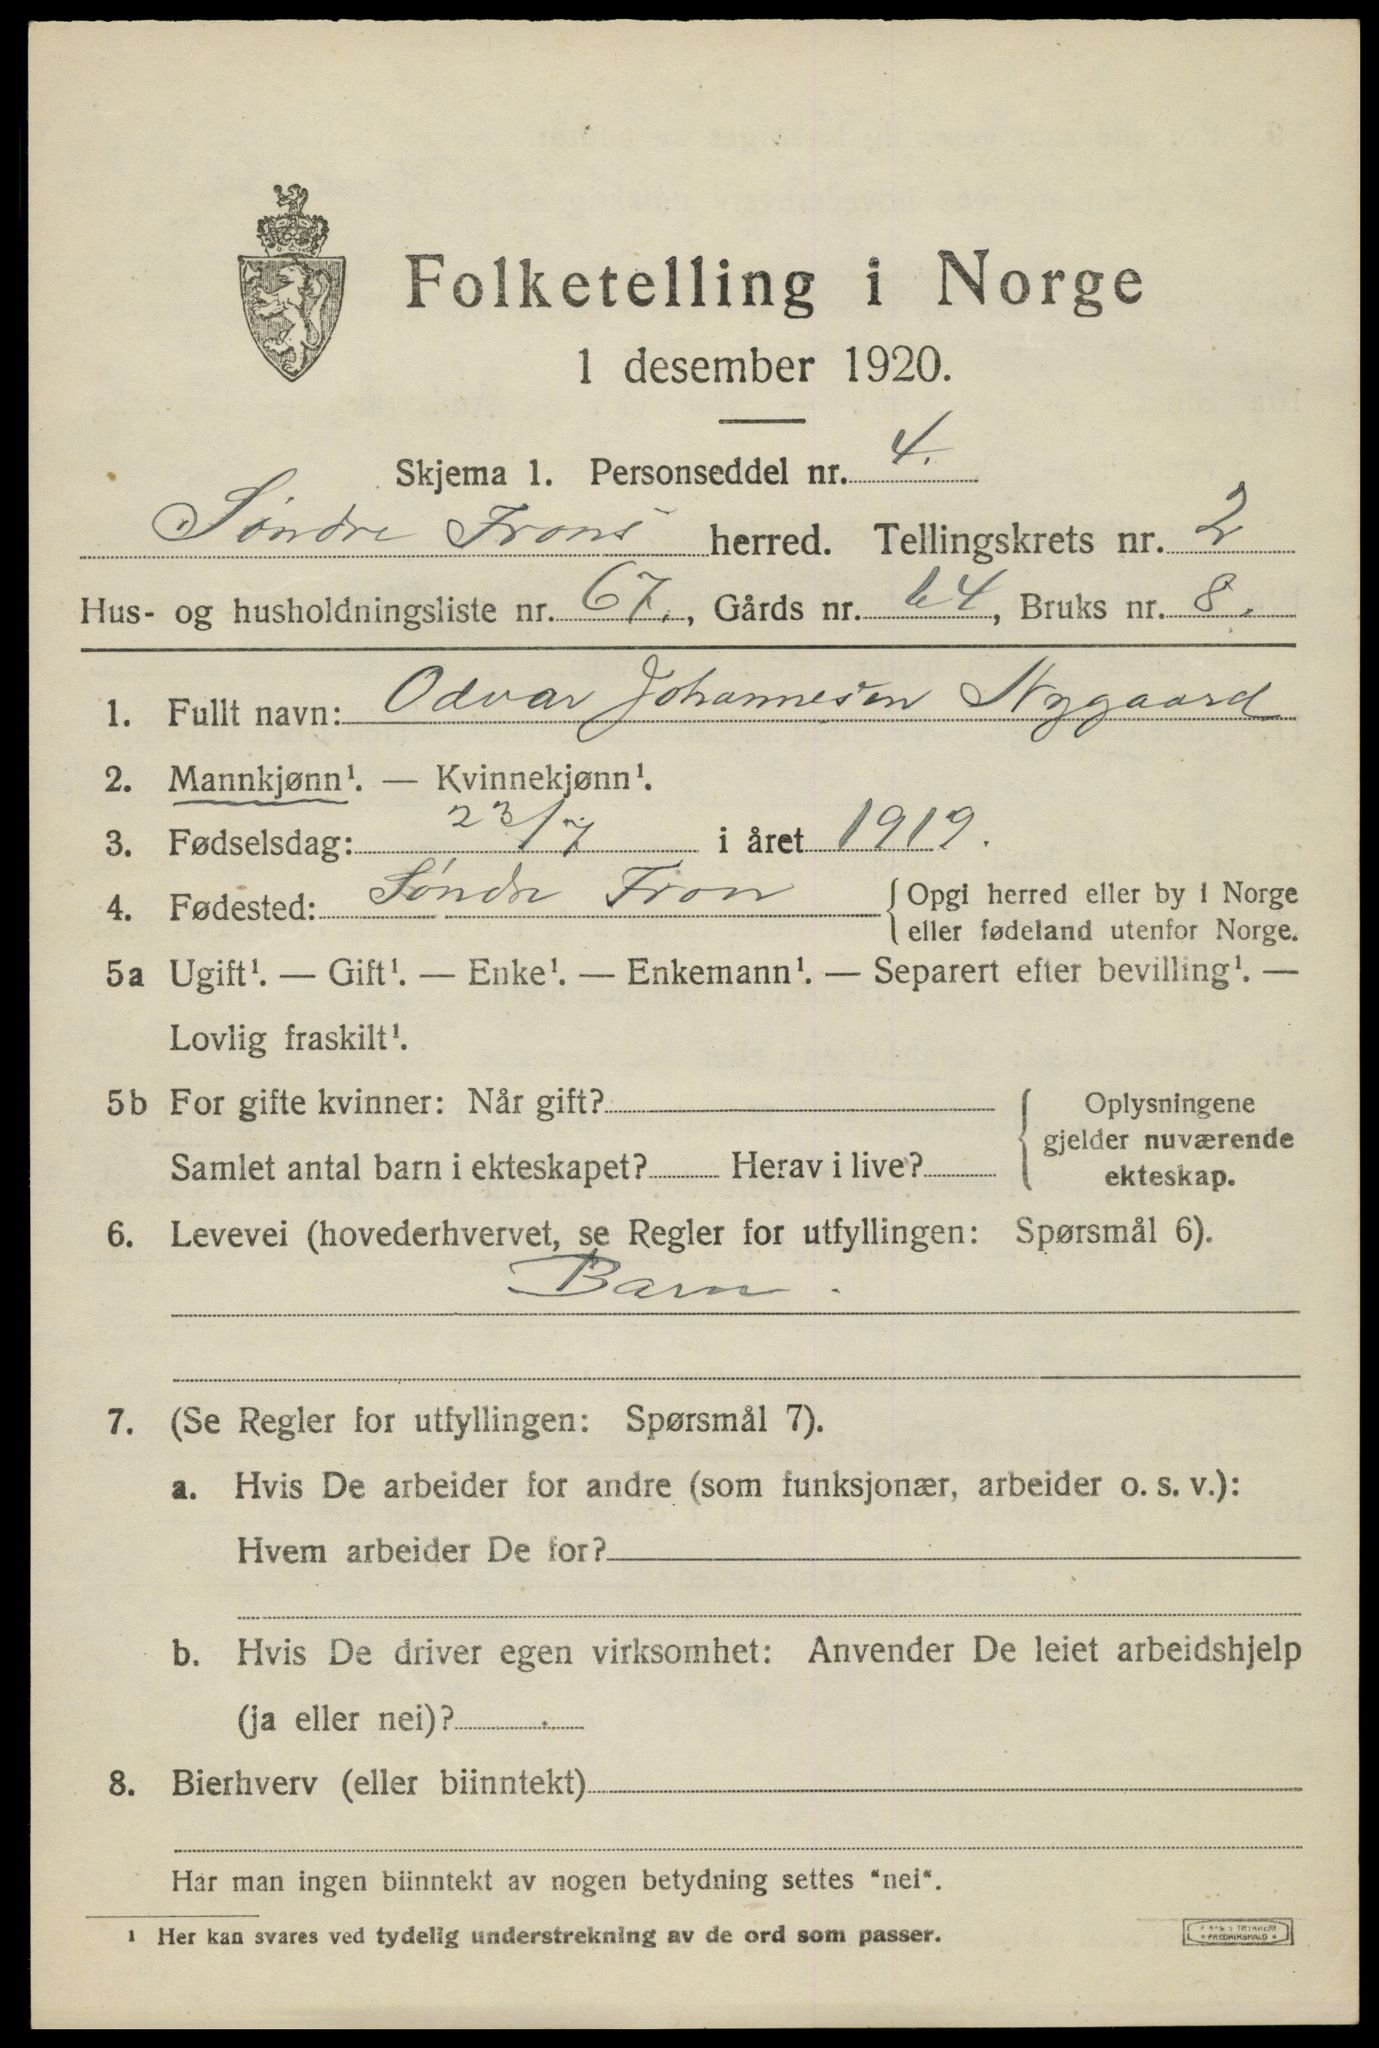 Folketelling i Norge
1 desember 1920.
Skjema 1. Personseddel nr. 4.
Søndre Frons herred. Tellingskrets nr. 2
Hus- og husholdningsliste nr. 67., Gårds nr. 64, Bruks nr. 8.
1. Fullt navn: Odvar Johannesen Nygaard
2. Mannkjønn¹. — Kvinnekjønn¹.
3. Fødselsdag: 23/7 i året 1919.
4. Fødested: Søndre Fron { Opgi herred eller by i Norge
eller fødeland utenfor Norge.
5a Ugift¹. — Gift¹. — Enke¹. — Enkemann¹. — Separert efter bevilling¹. —
Lovlig fraskilt¹.
5b For gifte kvinner: Når gift? { Oplysningene
gjelder nuværende
Samlet antal barn i ekteskapet? Herav i live? ekteskap.
6. Levevei (hovederhvervet, se Regler for utfyllingen: Spørsmål 6).
Barn.
7. (Se Regler for utfyllingen: Spørsmål 7).
a. Hvis De arbeider for andre (som funksjonær, arbeider o. s. v.):
Hvem arbeider De for?
b. Hvis De driver egen virksomhet: Anvender De leiet arbeidshjelp
(ja eller nei)?
8. Bierhverv (eller biinntekt)
Har man ingen biinntekt av nogen betydning settes "nei".
¹ Her kan svares ved tydelig understrekning av de ord som passer.
FREDRIKSHALD